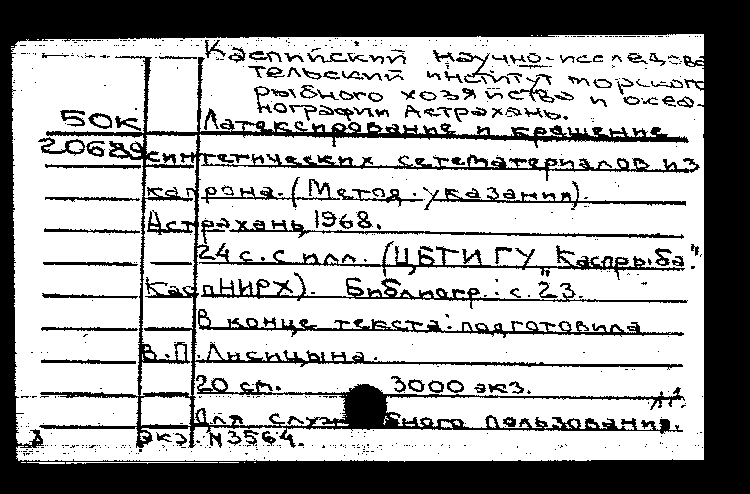 Каспийский научно-исследова
тельский институт морского
рыбного хозяйства и океа-
нографии Астрахань.
50К Латексирование и крашение
20689 синтетических сетематериалов из
капрона. (Метод. указания).
Астрахань, 1968.
24 с. с илл. (ЦБТИ ГУ "Каспрыба".
КаспНИРХ). Библиогр.: с. 23.
В конце текста: подготовила
В.П. Лисицына.
20 см. 3000 экз.
Для служебного пользования.
экз. N3564.